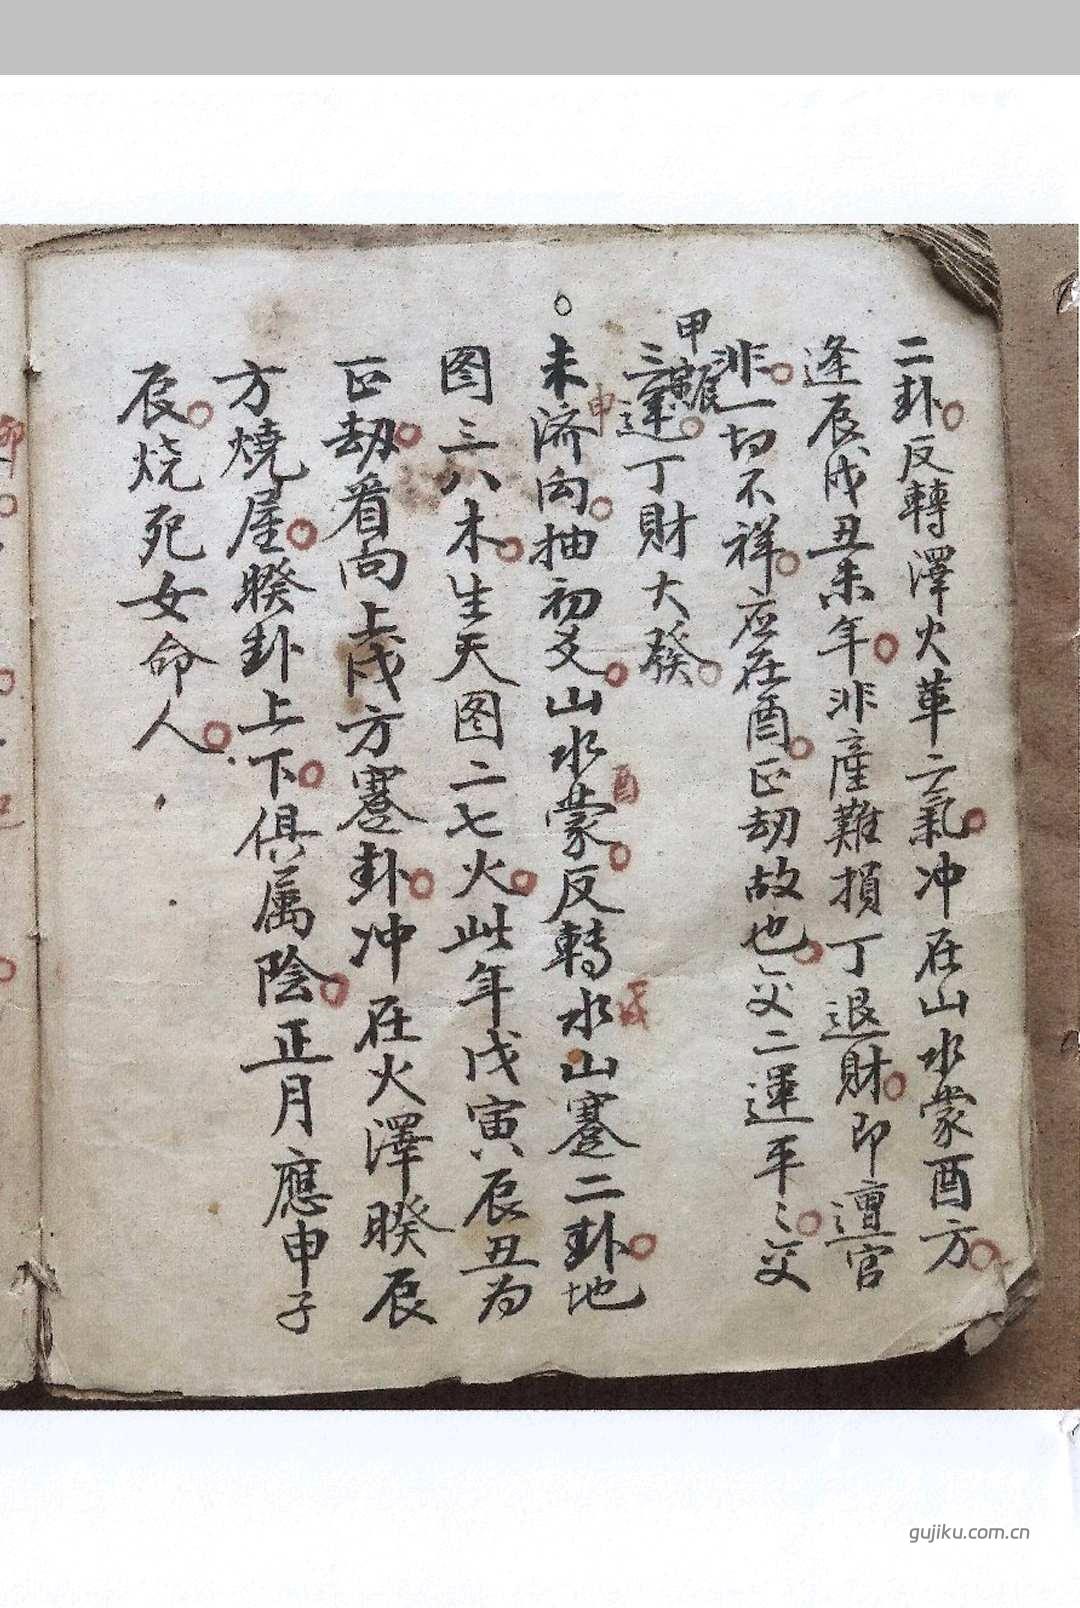 二卦反轉澤火革二氣冲在山水蒙酉方
逢辰戌丑未年非產難損丁退財即遭官
非一切不祥应在酉正劫故也交二運平〻交
甲辰
三運丁財大發
未济向抽初爻山水蒙反轉水山蹇二卦地
申
酉
戌
图三八木生天图二七火此年戊寅辰丑为
正劫看向上戌方蹇卦冲在火澤睽辰
方燒屋睽卦上下俱属陰正月應申子
辰烧死女命人
gujiku.com.cn